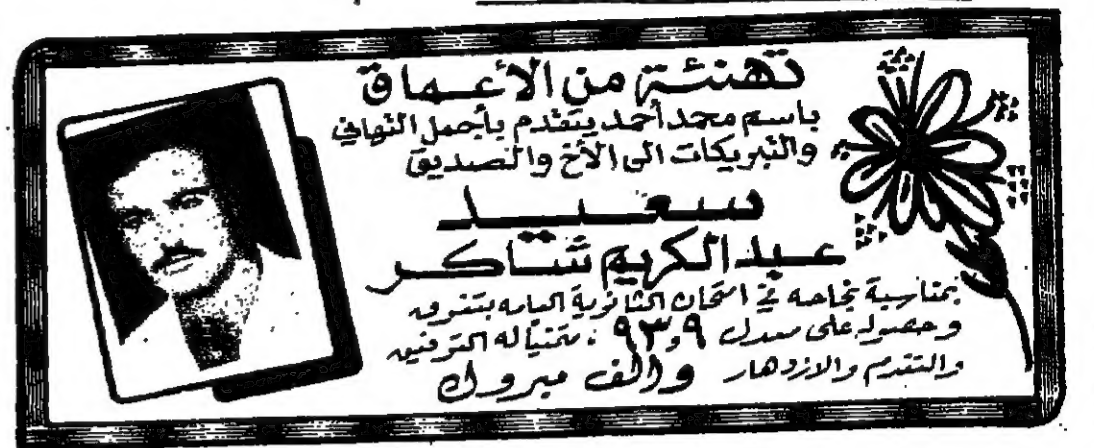 تهنئة من الأعماق
باسم محمد أحمد يتقدم بأجمل التهاني
والتبريكات الى الأخ والصديق
سعيد
عبدالكريم شاكر
بمناسبة نجاحه في امتحان الثانوية العامه بتفوق
وحصوله على معدل ٩٣,٩ ، متمنياً له التوفيق
والتقدم والازدهار والف مبروك